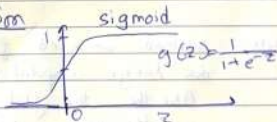 sigmoid
1
g(z) = 1/(1+e^-z)
0
z